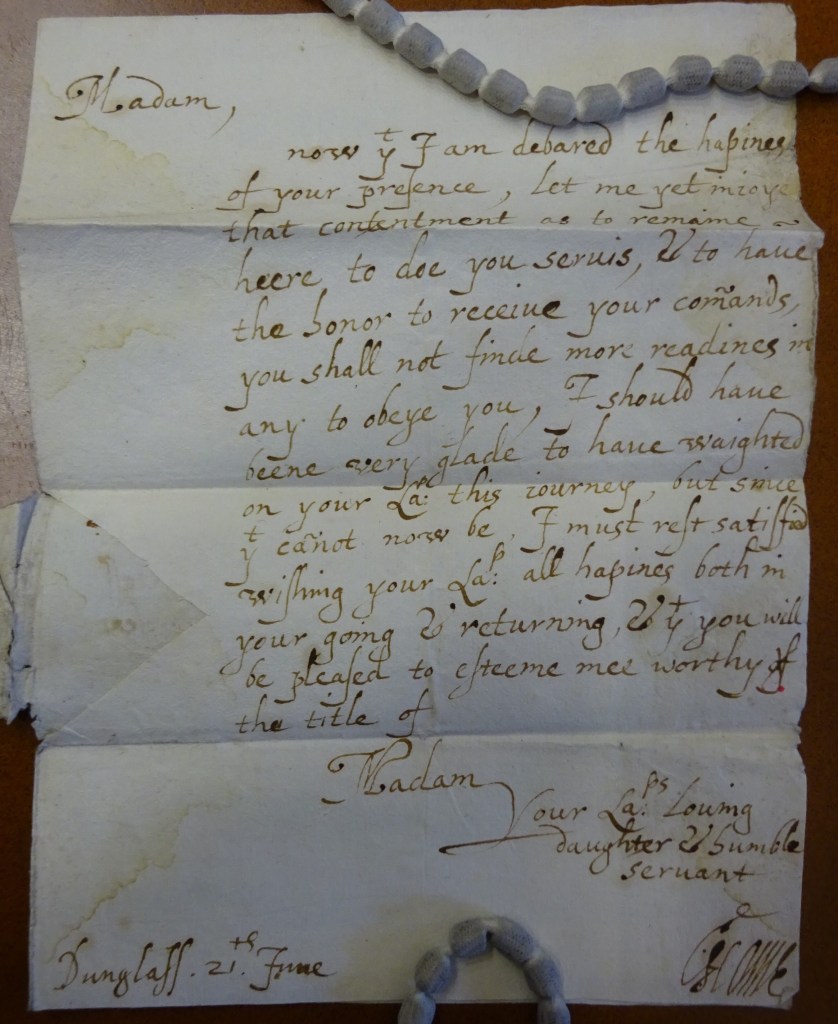 Madam,
now yt I am debared the hapines
of your presence, let me yet inioye
that contentment as to remaine
heere, to doe you servis, & to have
the honor to receive your comãnds,
you shall not finde more readines in
any to obeye you, I should have
beene very glade to have waighted
on your La:p this iourney, but since
yt cãnot now be, I must rest satisfied
wishing your La:p all hapines both in
your going & returning, & yt you will
be pleased to esteeme mee worthy of
the title of
Madam
Your La:ps Loving
daughter & humble
servant
Dunglass. 21th. June